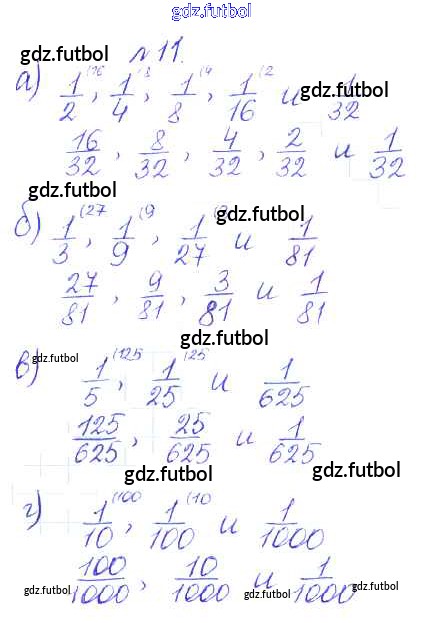 gdz.futbol
gdz.futbol
№ 11.
а) 1/2 (16, 1/4 (8, 1/8 (4, 1/16 (2 и 1/32
gdz.futbol
16/32, 8/32, 4/32, 2/32 и 1/32
gdz.futbol
б) 1/3 (27, 1/9 (9, 1/27 и 1/81
gdz.futbol
27/81, 9/81, 3/81 и 1/81
gdz.futbol
gdz.futbol
в) 1/5 (125, 1/25 (25 и 1/625
125/625, 25/625 и 1/625
gdz.futbol
gdz.futbol
г) 1/10 (100, 1/100 (10 и 1/1000
100/1000, 10/1000 и 1/1000
gdz.futbol
gdz.futbol
gdz.futbol